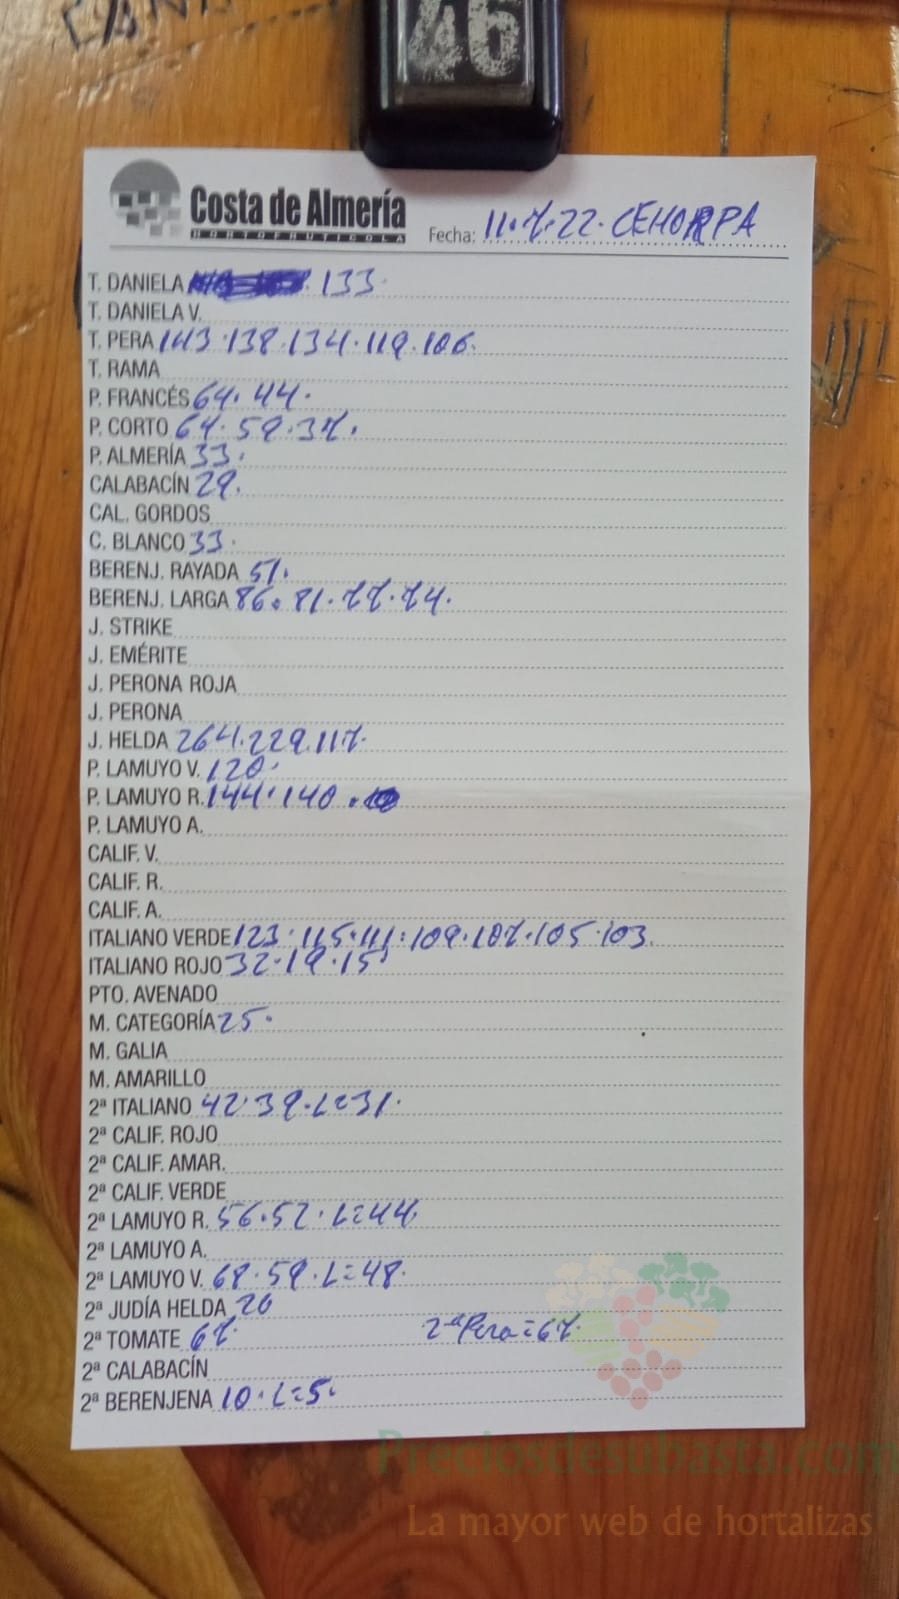 46
Costa de Almería
HORTOFRUTICOLA
Fecha: 11.7.22. CEHORPA
T. DANIELA 133.
T. DANIELA V.
T. PERA 143.138.134.119.106.
T. RAMA
P. FRANCÉS 64.44.
P. CORTO 64.59.37.
P. ALMERÍA 33.
CALABACÍN 29.
CAL. GORDOS
C. BLANCO 33.
BERENJ. RAYADA 51.
BERENJ. LARGA 86.81.77.74.
J. STRIKE
J. EMÉRITE
J. PERONA ROJA
J. PERONA
J. HELDA 264.229.117.
P. LAMUYO V. 120.
P. LAMUYO R. 144.140.
P. LAMUYO A.
CALIF. V.
CALIF. R.
CALIF. A.
ITALIANO VERDE 123.115.111.109.107.105.103.
ITALIANO ROJO 32.19.15.
PTO. AVENADO
M. CATEGORÍA 25.
M. GALIA
M. AMARILLO
2ª ITALIANO 42.39.L=31.
2ª CALIF. ROJO
2ª CALIF. AMAR.
2ª CALIF. VERDE
2ª LAMUYO R. 56.52.L=44.
2ª LAMUYO A.
2ª LAMUYO V. 68.59.L=48.
2ª JUDÍA HELDA 20
2ª TOMATE 67. 2ª Pera=67.
2ª CALABACÍN
2ª BERENJENA 10.L=5.
Preciosdesubasta.com
La mayor web de hortalizas